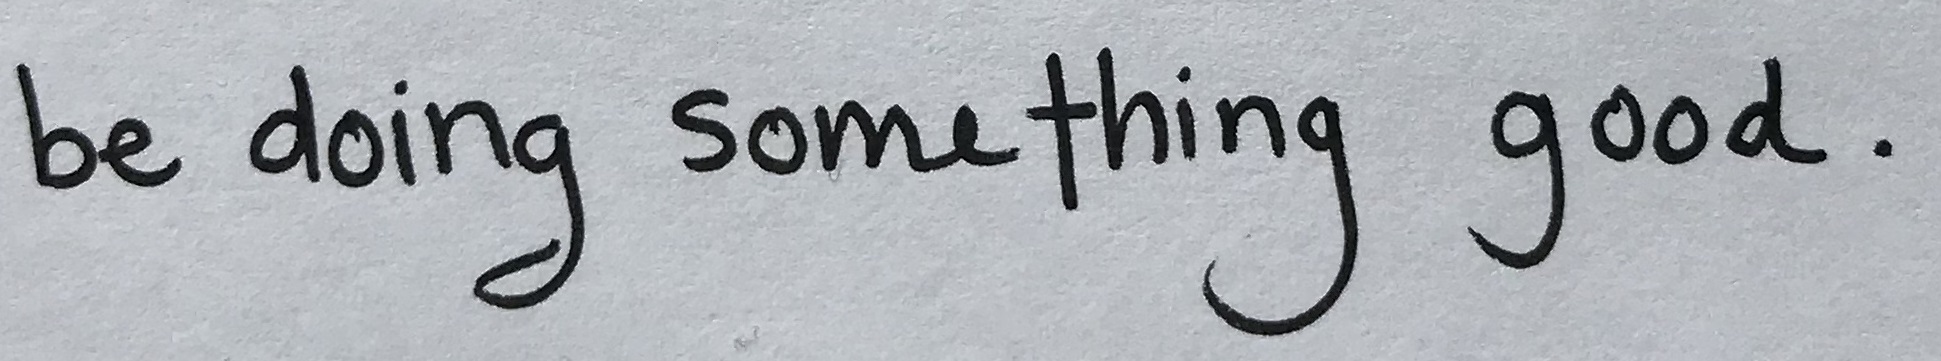 be doing something good.